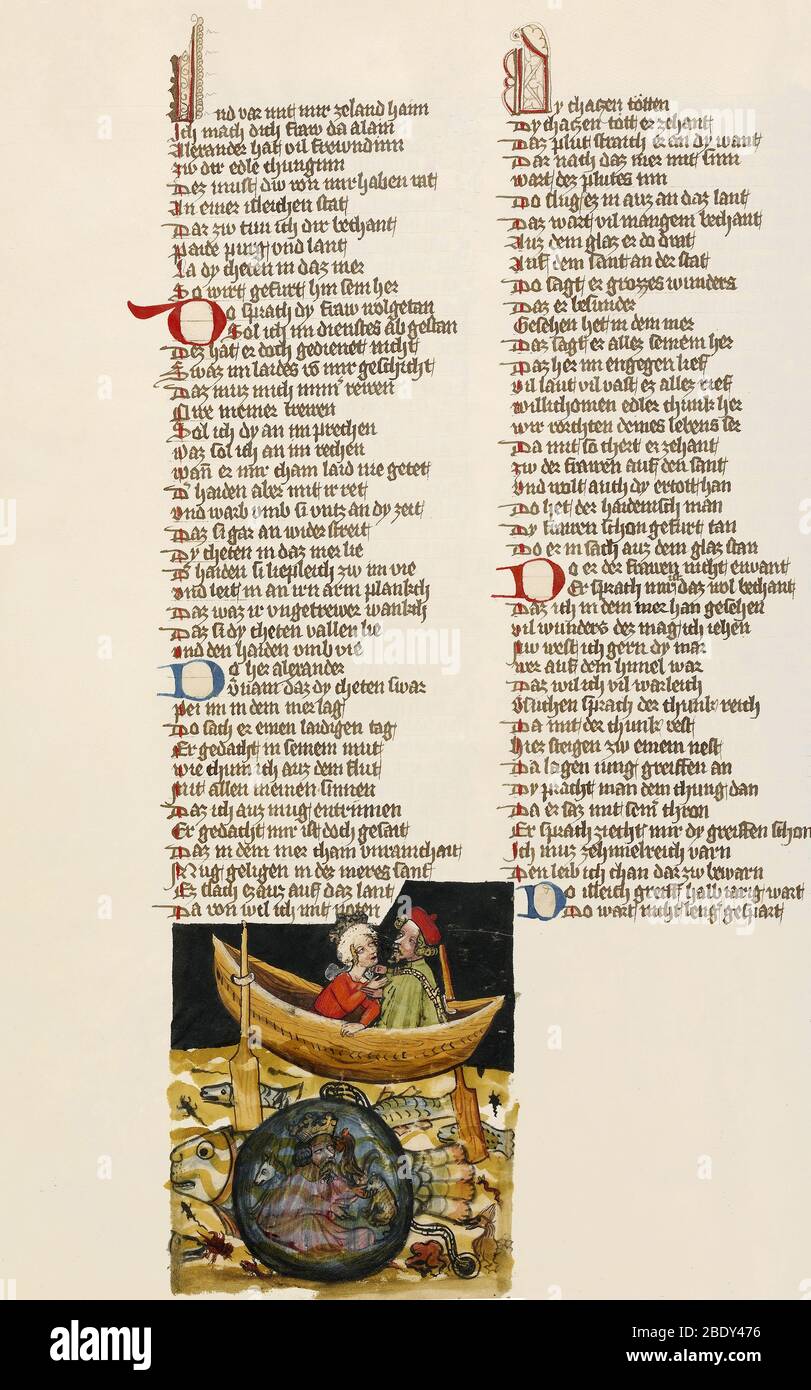 Und var mit mir ze land haim
Ich mach dich fraw da alain
Alexander hat vil frewndinn
Zw dir edle chunginn
Der must dw von mir haben rat
In einer isleichen stat
Daz zw tun ich dir bechant
Paide purg vnd lant
La dy cheten in daz mer
So wirt gefurt hin sein her
Do sprach dy fraw wolgetan
Sol ich im dienstes ab gestan
Dez hat er doch gedienet nicht
Swaz im laides vo mir geschicht
Daz muz mich immer rewen
Owe meiner trewen
Sol ich dy an im prechen
Waz sol ich an im rechen
Wann er mir cham laid nie getet
Der haiden aber mit ir ret
Vnd warb vmb si vntz an dy zeit
Daz si gar an widerstreit
Dy cheten in daz mer lie
Der haiden si liepleich zw im vie
Vnd leit in an irn arm plankch
Daz waz ir vngetrewer wankch
Daz si dy cheten vallen lie
Vnd den haiden vmb vie
Do her alexander
Vernam daz dy cheten swar
Pei im in dem mer lag
Do sach er einen laidigen tag
Er gedacht in seinem mut
Wie chum ich aus dem flut
Mit allen meinen sinnen
Daz ich auz mug entrinnen
Er gedacht mir ist doch gesait
Daz in dem mer cham vnrainchait
Mug geligen in dez meres sant
Ez slach ez auz auf daz lant
Da von wil ich mit noten
Dy chatzen toten
Dy chatzen tott er zehant
Daz plut straich er an dy want
Dar nach daz mer mit sinn
Wart dez plutes inn
Do slug ez in auz an daz lant
Daz wart vil mangem bechant
Auz dem glaz er do drat
Auf dem sant an der stat
Do sagt er grozzes wunders
Daz er besunder
Gesehen het in dem mer
Daz sagt er allez seinem her
Daz her im engegen lief
Vil laut vil vast ez allez rief
Willichomen edler chunk her
Wir vorchten deines lebens ser
Da mit so chert er zehant
Zw der frawen auf den sant
Vnd wolt auch dy ertott han
Do het der haidenisch man
Dy frawen schon gefurt dan
Do er in sach auz dem glaz stan
Do er der frawen nicht envant
Er sprach nur daz wol bechant
Daz ich in dem mer han gesehen
Vil wunders dez mag ich iehen
Nw west ich gern dy mar
Wer auf dem himel war
Daz wil ich vil warleich
Vsuchen sprach der chunk reich
Da mit der chunk vest
Hiez steigen zw einem nest
Da lagen iung greiffen an
Dy pracht man dem chung dan
Da er saz mit seim thron
Er sprach ziecht mir dy greiffen schon
Ich muz ze himelreich varn
Den leib ich chan dar zw bewarn
Do isleich greiff halb iarig wart
Do wart nicht leng gespart
alamy
Image ID: 2BDY476
www.alamy.com